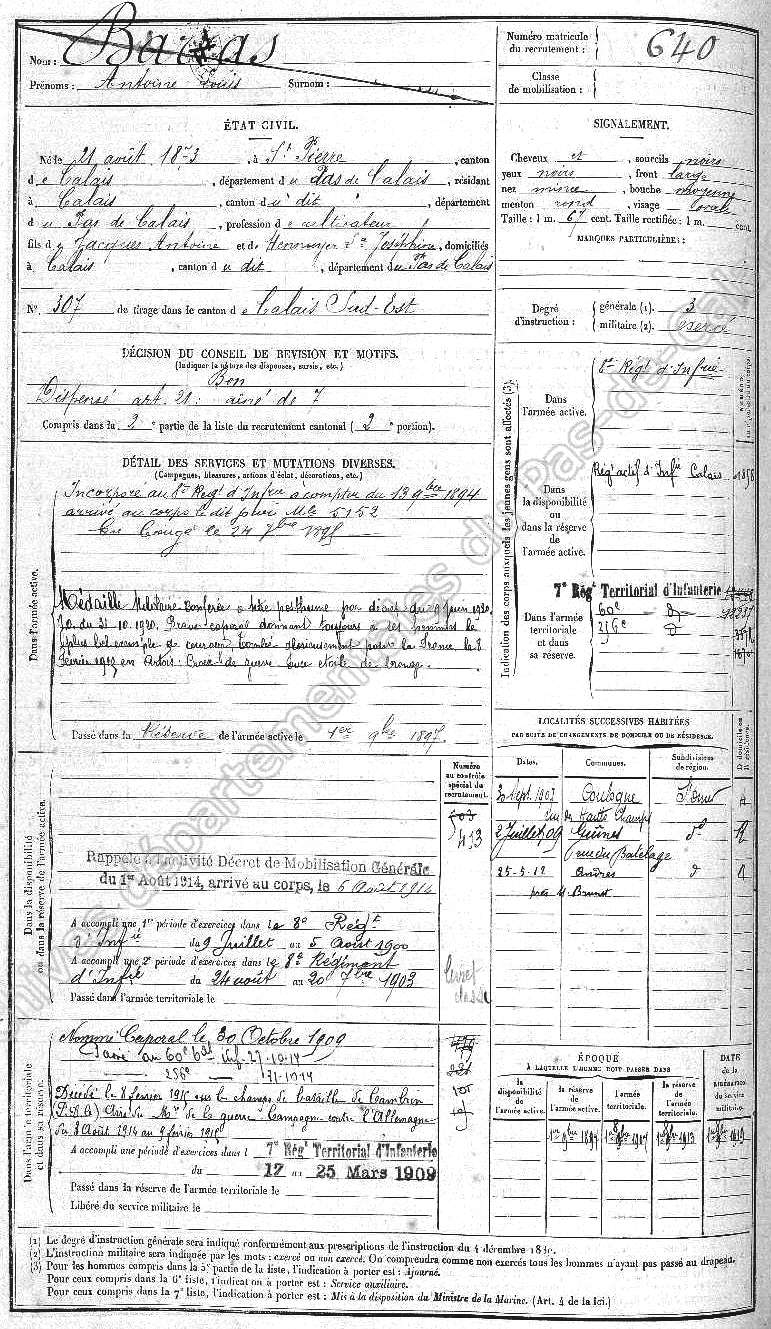 Nom : Barras
Prénoms : Antoine Louis Surnom :
Numéro matricule du recrutement : 640
Classe de mobilisation :
ÉTAT CIVIL.
Né le 21 août 1873, à St Pierre, canton
de Calais, département du Pas de Calais, résidant
à Calais, canton du dit, département
du Pas de Calais, profession de cultivateur
fils de Jacques Antoine et de Joséphine, domiciliés
à Calais, canton du dit, département du Pas de Calais
N° 307 de tirage dans le canton de Calais Sud-Est
SIGNALEMENT.
Cheveux et, sourcils noirs
yeux noirs, front large
nez mince, bouche moyenne
menton rond, visage ovale
Taille : 1 m. 67 cent. Taille rectifiée : 1 m. cent.
MARQUES PARTICULIÈRES :
Degré d'instruction :
générale (1). 3
militaire (2). exercé
DÉCISION DU CONSEIL DE REVISION ET MOTIFS.
(Indiquer la nature des dispenses, sursis, etc.)
Bon
Dispensé art. 21 : aîné de 7
Compris dans la 2e partie de la liste du recrutement cantonal (2e portion).
DÉTAIL DES SERVICES ET MUTATIONS DIVERSES.
(Campagnes, blessures, actions d'éclat, décorations, etc.)
Dans l'armée active.
Incorporé au 8e Régt d'Infrie à compter du 13 9bre 1894
arrivé au corps le dit jour Mle 5152
En Congé le 24 7bre 1895
Médaille Militaire conférée à titre posthume par décret du
J.O. du 31.10.1920. Brave caporal donnant toujours à ses hommes le
plus bel exemple de courage. Tombé glorieusement pour la France le 8
Février 1915 en Artois. Croix de guerre avec étoile de bronze.
Passé dans la Réserve de l'armée active le 1er 9bre 1897.
Indication des corps auxquels les jeunes gens sont affectés (3).
Dans l'armée active.
8e Régt d'Infrie
Dans la disponibilité ou dans la réserve de l'armée active.
Régt actif d'Infie Calais 1858
Dans l'armée territoriale et dans sa réserve.
7e Régt Territorial d'Infanterie
60e d°
256e d°
LOCALITÉS SUCCESSIVES HABITÉES
PAR SUITE DE CHANGEMENTS DE DOMICILE OU DE RÉSIDENCE.
Dates. Communes. Subdivisions de région. D. domicile ou R. résidence.
Sept. 1907 Coulogne St Omer R
des Hauts Champs
2 Juillet 09 Guînes d° R
rue du Batelage
25-5-12 Andres d R
près M. Brunet
Dans la disponibilité ou dans la réserve de l'armée active.
Numéro au contrôle spécial du recrutement.
413
Rappelé à l'activité Décret de Mobilisation Générale
du 1er Août 1914, arrivé au corps, le 6 Août 1914
A accompli une 1re période d'exercices dans le 8e Régt
d'Infie du 9 Juillet au 5 Août 1900
A accompli une 2e période d'exercices dans le 8e Régiment
d'Infie du 24 août au 20 7bre 1903
Passé dans l'armée territoriale le
livret
classe
Dans l'armée territoriale et dans sa réserve.
Nommé Caporal le 30 Octobre 1909
Passé au 60e Inf. 27-10-14
256e 31-10-14
Décédé le 8 février 1915 sur le champ de bataille de Cambrin
(P.D.C.) Avis du Mre de la guerre. Campagne contre l'Allemagne
du 3 Août 1914 au 9 février 1915
A accompli une période d'exercices dans l 7e Régt Territorial d'Infanterie
du 17 au 25 Mars 1909
Passé dans la réserve de l'armée territoriale le
Libéré du service militaire le
ÉPOQUE
À LAQUELLE L'HOMME DOIT PASSER DANS
la disponibilité de l'armée active. la réserve de l'armée active. l'armée territoriale. la réserve de l'armée territoriale.
DATE de la libération du service militaire.
1er 9bre 1897 1er 8bre 1907 1er 8bre 1913 1er 8bre 1919
(1) Le degré d'instruction générale sera indiqué conformément aux prescriptions de l'instruction du 4 décembre 1889.
(2) L'instruction militaire sera indiquée par les mots : exercé ou non exercé. On comprendra comme non exercés tous les hommes n'ayant pas passé au drapeau.
(3) Pour les hommes compris dans la 5e partie de la liste, l'indication à porter est : Ajourné.
Pour ceux compris dans la 6e liste, l'indication à porter est : Service auxiliaire.
Pour ceux compris dans la 7e liste, l'indication à porter est : Mis à la disposition du Ministre de la Marine. (Art. 4 de la loi.)
Archives départementales du Pas-de-Calais